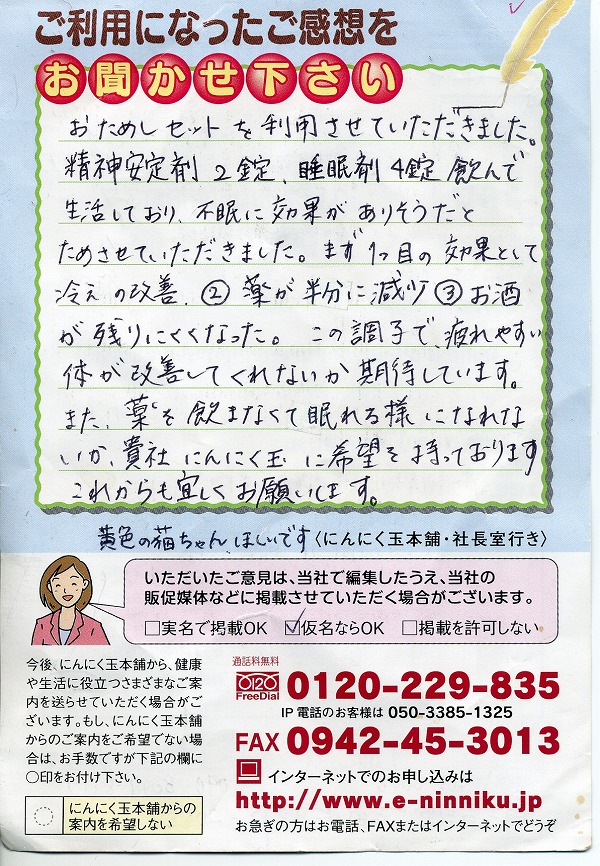 ご利用になったご感想を
お聞かせ下さい
おためしセットを利用させていただきました。
精神安定剤2錠、睡眠剤4錠飲んで
生活しており、不眠に効果がありそうだと
ためさせていただきました。まず1つ目の効果として
冷えの改善、②薬が半分に減少③お酒
が残りにくくなった。この調子で、疲れやすい
体が改善してくれないか期待しています。
また、薬を飲まなくて眠れる様になれな
いか、貴社にんにく玉に希望を持っております
これからも宜しくお願いします。
黄色の猫ちゃんほしいです〈にんにく玉本舗・社長室行き〉
いただいたご意見は、当社で編集したうえ、当社の
販促媒体などに掲載させていただく場合がございます。
□実名で掲載OK ☑仮名ならOK □掲載を許可しない
今後、にんにく玉本舗から、健康
や生活に役立つさまざまなご案
内を送らせていただく場合がご
ざいます。もし、にんにく玉本舗
からのご案内をご希望でない場
合は、お手数ですが下記の欄に
○印をお付け下さい。
にんにく玉本舗からの
案内を希望しない
通話料無料
FreeDial 0120-229-835
IP電話のお客様は 050-3385-1325
FAX 0942-45-3013
インターネットでのお申し込みは
http://www.e-ninniku.jp
お急ぎの方はお電話、FAXまたはインターネットでどうぞ